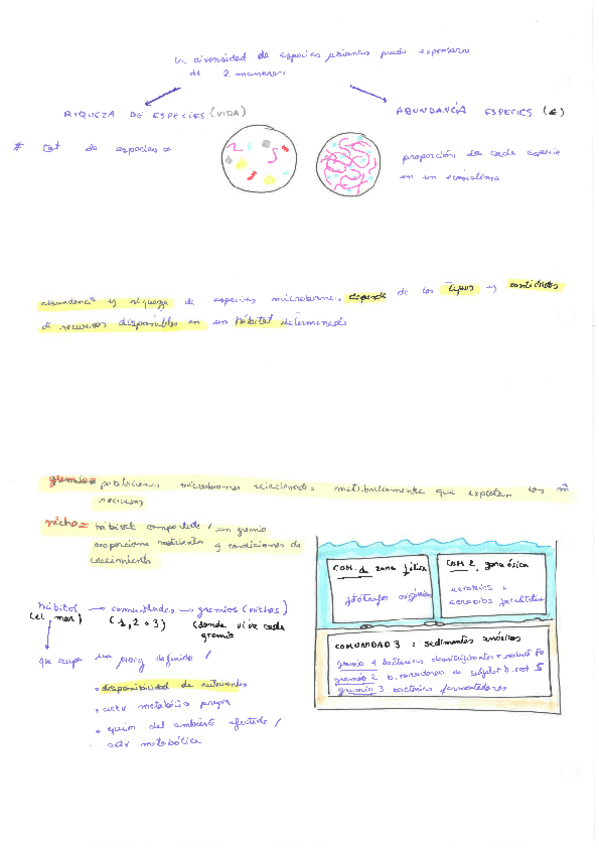 diversidad de especies puede expresarse
de 2 maneras
RIQUEZA DE ESPECIES (VIDA)
ABUNDANCIA ESPECIES (€)
# tot de especies =
proporción de cada especie
en un ecosistema
abundanc y riqueza de especies depende de los tipos y cantidades
de recursos disponibles en un hábitat determinado
gremio = poblaciones microbianas relacionadas metabólicamente que explotan los
recursos
nicho = hábitat compartido / un gremio
proporciona nutrientes y condiciones de
crecimiento
COM. 1 zona fótica
fotótrofo
COM 2. zona óxica
aerobios +
aerobios facultativos
COMUNIDAD 3 : sedimentos anóxicos
gremio 1 bacterias desnitrificantes
gremio 2 b. reductoras
gremio 3 bacterias fermentadoras
hábitat → comunidades → gremios (nichos)
(el mar) (1, 2 o 3) (donde vive cada
gremio
que definido /
• disponibilidad de nutrientes
• activ metabólica propia
• del ambiente efectuado /
activ metabólica